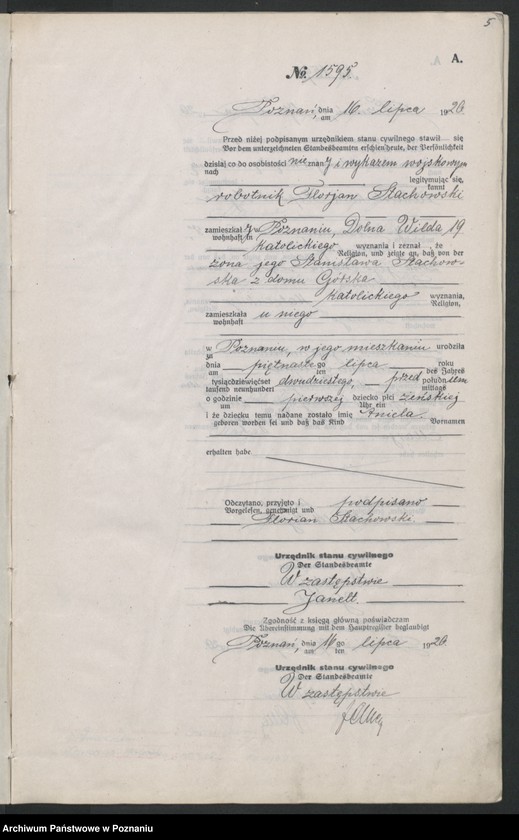 5
A.
No. 1595.
Poznań, dnia 16. lipca 1920.
am
Przed niżej podpisanym urzędnikiem stanu cywilnego stawił się
Vor dem unterzeichneten Standesbeamten erschien heute, der Persönlichkeit
dzisiaj co do osobistości nieznany i wykazem wojskowym
nach
legitymując się,
kannt
robotnik Florjan Stachowski
zamieszkały w Poznaniu, Dolna Wilda 19
wohnhaft in
katolickiego wyznania i zeznał, że
Religion, und zeigte an, daß von der
żona jego Stanisława Stachow-
ska z domu Górska
katolickiego wyznania,
Religion,
zamieszkała u niego
wohnhaft
w Poznaniu, w jego mieszkaniu urodziła
zu
dnia piętnastego lipca roku
am ten des Jahres
tysiącdziewięćset dwudziestego, przed południem
tausend neunhundert mittags
o godzinie pierwszej dziecko płci żeńskiej
um Uhr ein
i że dziecku temu nadane zostało imię Aniela.
geboren worden sei und daß das Kind Vornamen
erhalten habe
Odczytano, przyjęto i podpisano
Vorgelesen, genehmigt und
Florian Stachowski.
Urzędnik stanu cywilnego
Der Standesbeamte
W zastępstwie
Janelt.
Zgodność z księgą główną poświadczam
Die Übereinstimmung mit dem Hauptregister beglaubigt
Poznań, dnia 16 go lipca 1920.
am ten
Urzędnik stanu cywilnego
Der Standesbeamte
W zastępstwie
Archiwum Państwowe w Poznaniu